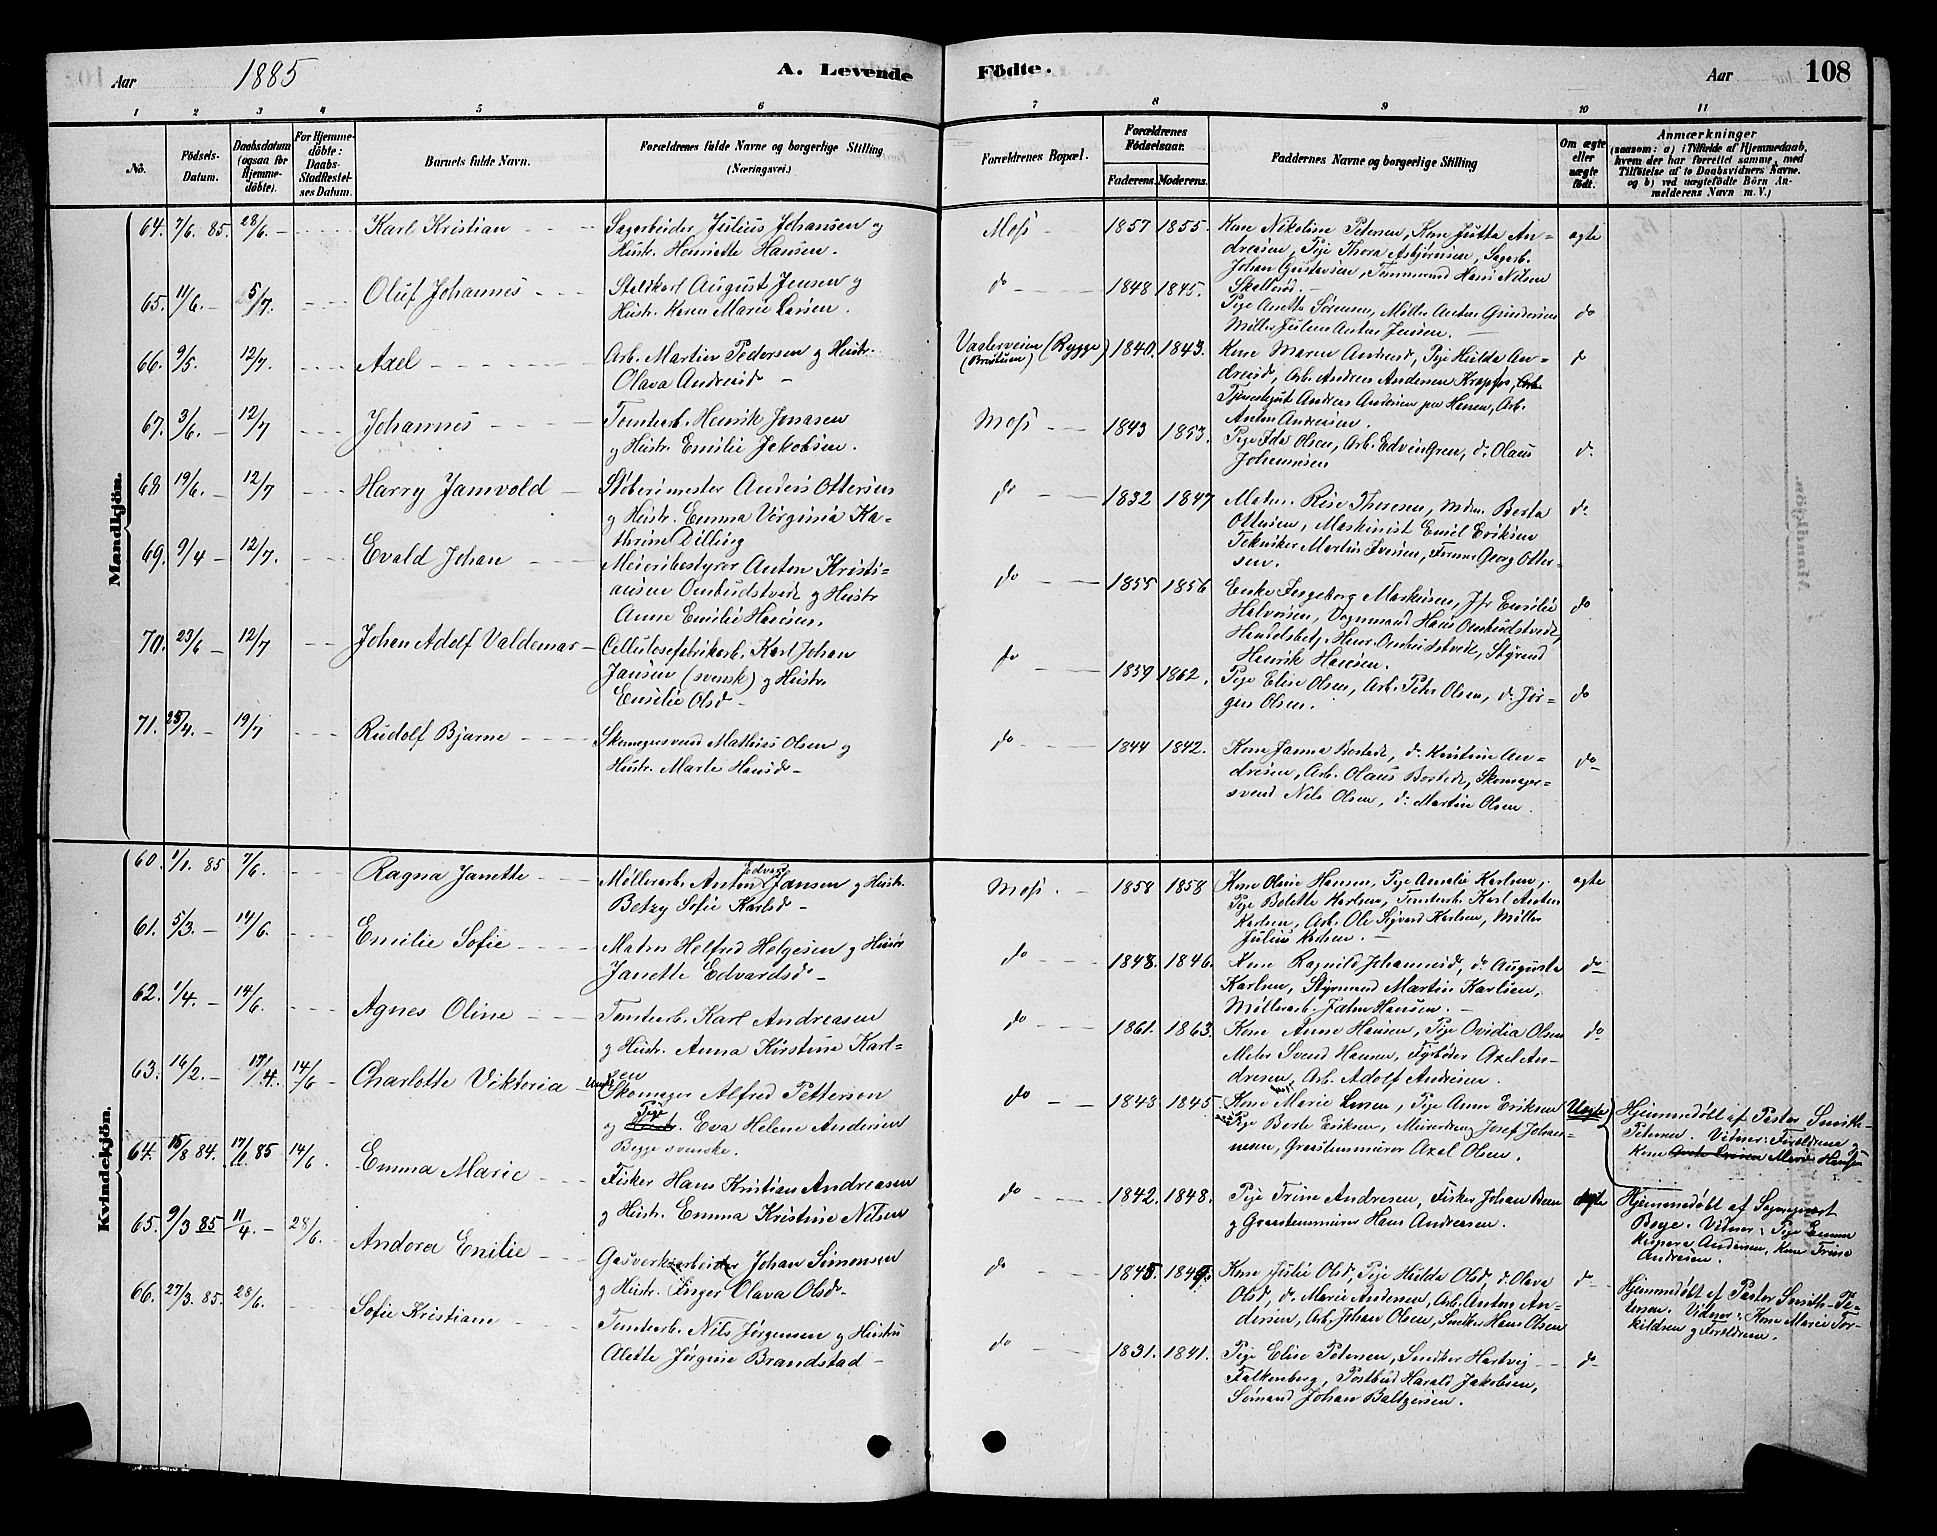 Aar 1885 A. Levende Födte. Aar 108
1 2 3 4 5 6 7 8 9 10 11
No.
Födsels-Datum.
Daabsdatum (ogsaa for Hjemme-döbte).
For Hjemme-döbte: Daabs-Stadfæstel-ses Datum.
Barnets fulde Navn.
Forældrenes fulde Navne og borgerlige Stilling
(Næringsvei.)
Forældrenes Bopæl.
Forældrenes Födselsaar.
Faderens. Moderens.
Faddernes Navne og borgerlige Stilling
Om ægte eller uægte födt.
Anmærkninger
(saasom: a) i Tilfælde af Hjemmedaab,
hvem der har forrettet samme, med
Tilföielse af to Daabsvidners Navne.
og b) ved uægtefödte Börn An-
melderens Navn m. V.)
Mandkjön.
64. 7/6. 85. 28/6. Karl Kristian
Sagarbeider Julius Johansen og
Hustr. Henriette Hansen.
Moss 1857 1855.
Kone Nikoline Petersen, Kone Jutta An-
dreasen, Pige Thora Asbjørnsen, Sagarb.
Johan Gustavsen, Tømmermand Hans Nilsen
Skallerød.
ægte
65. 11/6. 5/7. Oluf Johannes
Staldkarl August Jensen og
Hustr. Karen Marie Larsen.
do 1848 1845.
Pige Anette Sørensen, Møller Anton Gundersen
Møller Julius Anton Jensen.
do
66. 9/5. 12/7. Axel
Arb. Martin Pedersen og Hustr.
Olava Andreasd
Vaalerveien (Rygge) 1840. 1843.
Kone Maren Andreasd, Pige Hulda An-
dreasd, Arb. Andreas Andersen Krapfos,
Tjenestegut Andreas Andersen Hansen, Arb.
Anton Andreasen.
67. 3/6. 12/7 Johannes
Tomtearb. Henrik Jonasen
og Hustr. Emilie Jakobsen.
Moss 1843 1853.
Pige Ida Olsen, Arb. Edvin Gren, do Olaus
Johannesen
do
68 19/6. 12/7 Harry Jamvold
Støberimester Anders Ottersen
og Hustr. Emma Virginia Ka-
thrine Dilling
do 1832 1847
Ottersen, Maskinist Emil Eriksen
Tekniker Martin Iversen, Former Georg Otter-
sen.
do
69. 9/4 12/7. Evald Johan
Meieribestyrer Anton Kristi-
ansen Ombudstvedt og Hustr
Anne Emilie Hansen.
do 1855 1856
Enke Ingeborg Markusen, Jfr Emilie
Halvorsen, Vognmand Hans Ombudstvedt,
Handelsbetj. Henr. Ombudstvedt, Styrmd
Henrik Hansen.
do
70. 23/6 12/7 Johan Adolf Valdemar
Cellulosefabrikarb. Karl Johan
Jansen (svensk) og Hustr.
Emilie Olsd
do 1859 1862.
Pige Elise Olsen, Arb. Peter Olsen, do Jør-
gen Olsen.
do
71. 25/4. 19/7 Rudolf Bjarne
Skomagersvend Mathias Olsen og
Hustr. Marte Hansd
do 1844 1842.
Kone Janna Bosted, do Kristine An-
dresen, Arb. Olaus Bosted, Skomager-
svend Nils Olsen, do Martin Olsen.
do
Kvindekjön.
60. 1/1. 85 7/6. Ragna Janette
Møllerarb. Anton Edvard Jansen og Hustr.
Betzy Sofie Karlsd
Moss. 1858 1858
Kone Oline Hansen, Pige Amalie Karlsen,
Pige Bolette Karlsen, Tomtearb. Karl Anton
Karlsen, Arb. Ole Sigvard Karlsen, Møller
Julius Karlsen.
ægte
61. 5/3. 14/6. Emilie Sofie
Matros Helfred Helgesen og Hustr
Janette Edvardsd
do 1848. 1846.
Kone Ragnild Johannesd, do Augusta
Karlsen, Styrmand Martin Karlsen,
Møllerarb. Johan Hansen.
do
62. 1/4. 14/6. Agnes Oline
Tomtearb. Karl Andreasen
og Hustr. Anna Kirstine Karl-
sen
do 1861. 1863.
Kone Anne Hansen, Pige Ovidia Olsen
Maler Svend Hansen, Fyrbøder Axel An-
dresen, Arb. Adolf Andresen.
do
63. 16/2. 17/4. 14/6 Charlotte Viktoria
Skomager Alfred Petterson
og Pige Eva Helene Andersen
Begge svenske.
do 1843 1845.
Kone Marie Larsen, Pige Anne Eriksen
Pige Berte Eriksen, Murerdreng Josef Johan-
nesen, Graastensmurer Axel Olsen.
Uægte
Hjemmedøbt af Pastor Smith-
Petersen. Vidner: Forældrene og
Kone Marie Hansen
64. 15/8 84. 17/11 85 14/6. Emma Marie
Fisker Hans Kristian Andreasen
og Hustr. Emma Kristine Nilsen
do 1842. 1848.
Pige Trine Andresen, Fisker Johan Been
og Graastensmurer Hans Andreasen.
ægte
Hjemmedøbt af Sogneprest
Boye. Vidner: Pige Emma
Kaspara Andersen, Kone Trine
Andresen.
65. 9/3 85 11/4. 28/6. Andora Emilie
Gasverksarbeider Johan Simonsen
og Hustr. Inger Olava Olsd
do 1845. 1849.
Kone Julie Olsd, Pige Hulda Olsd, do Olava
Olsd, do Marie Andersen, Arb. Anton An-
dersen, Arb. Johan Olsen, Snedker Hans Olsen
do
Hjemmedøbt af Pastor Smith-Pe-
tersen. Vidner: Kone Marie Tor-
kildsen og Forældrene.
66. 27/3. 85. 28/6. Sofie Kristiane
Tomtearb. Nils Jørgensen og Hustru
Alette Jørgine Brandstad
do 1831. 1841.
Pige Elise Petersen, Snedker Hartvig
Falkenberg, Postbud Harald Jakobsen,
Sømand Johan Baltzersen.
do